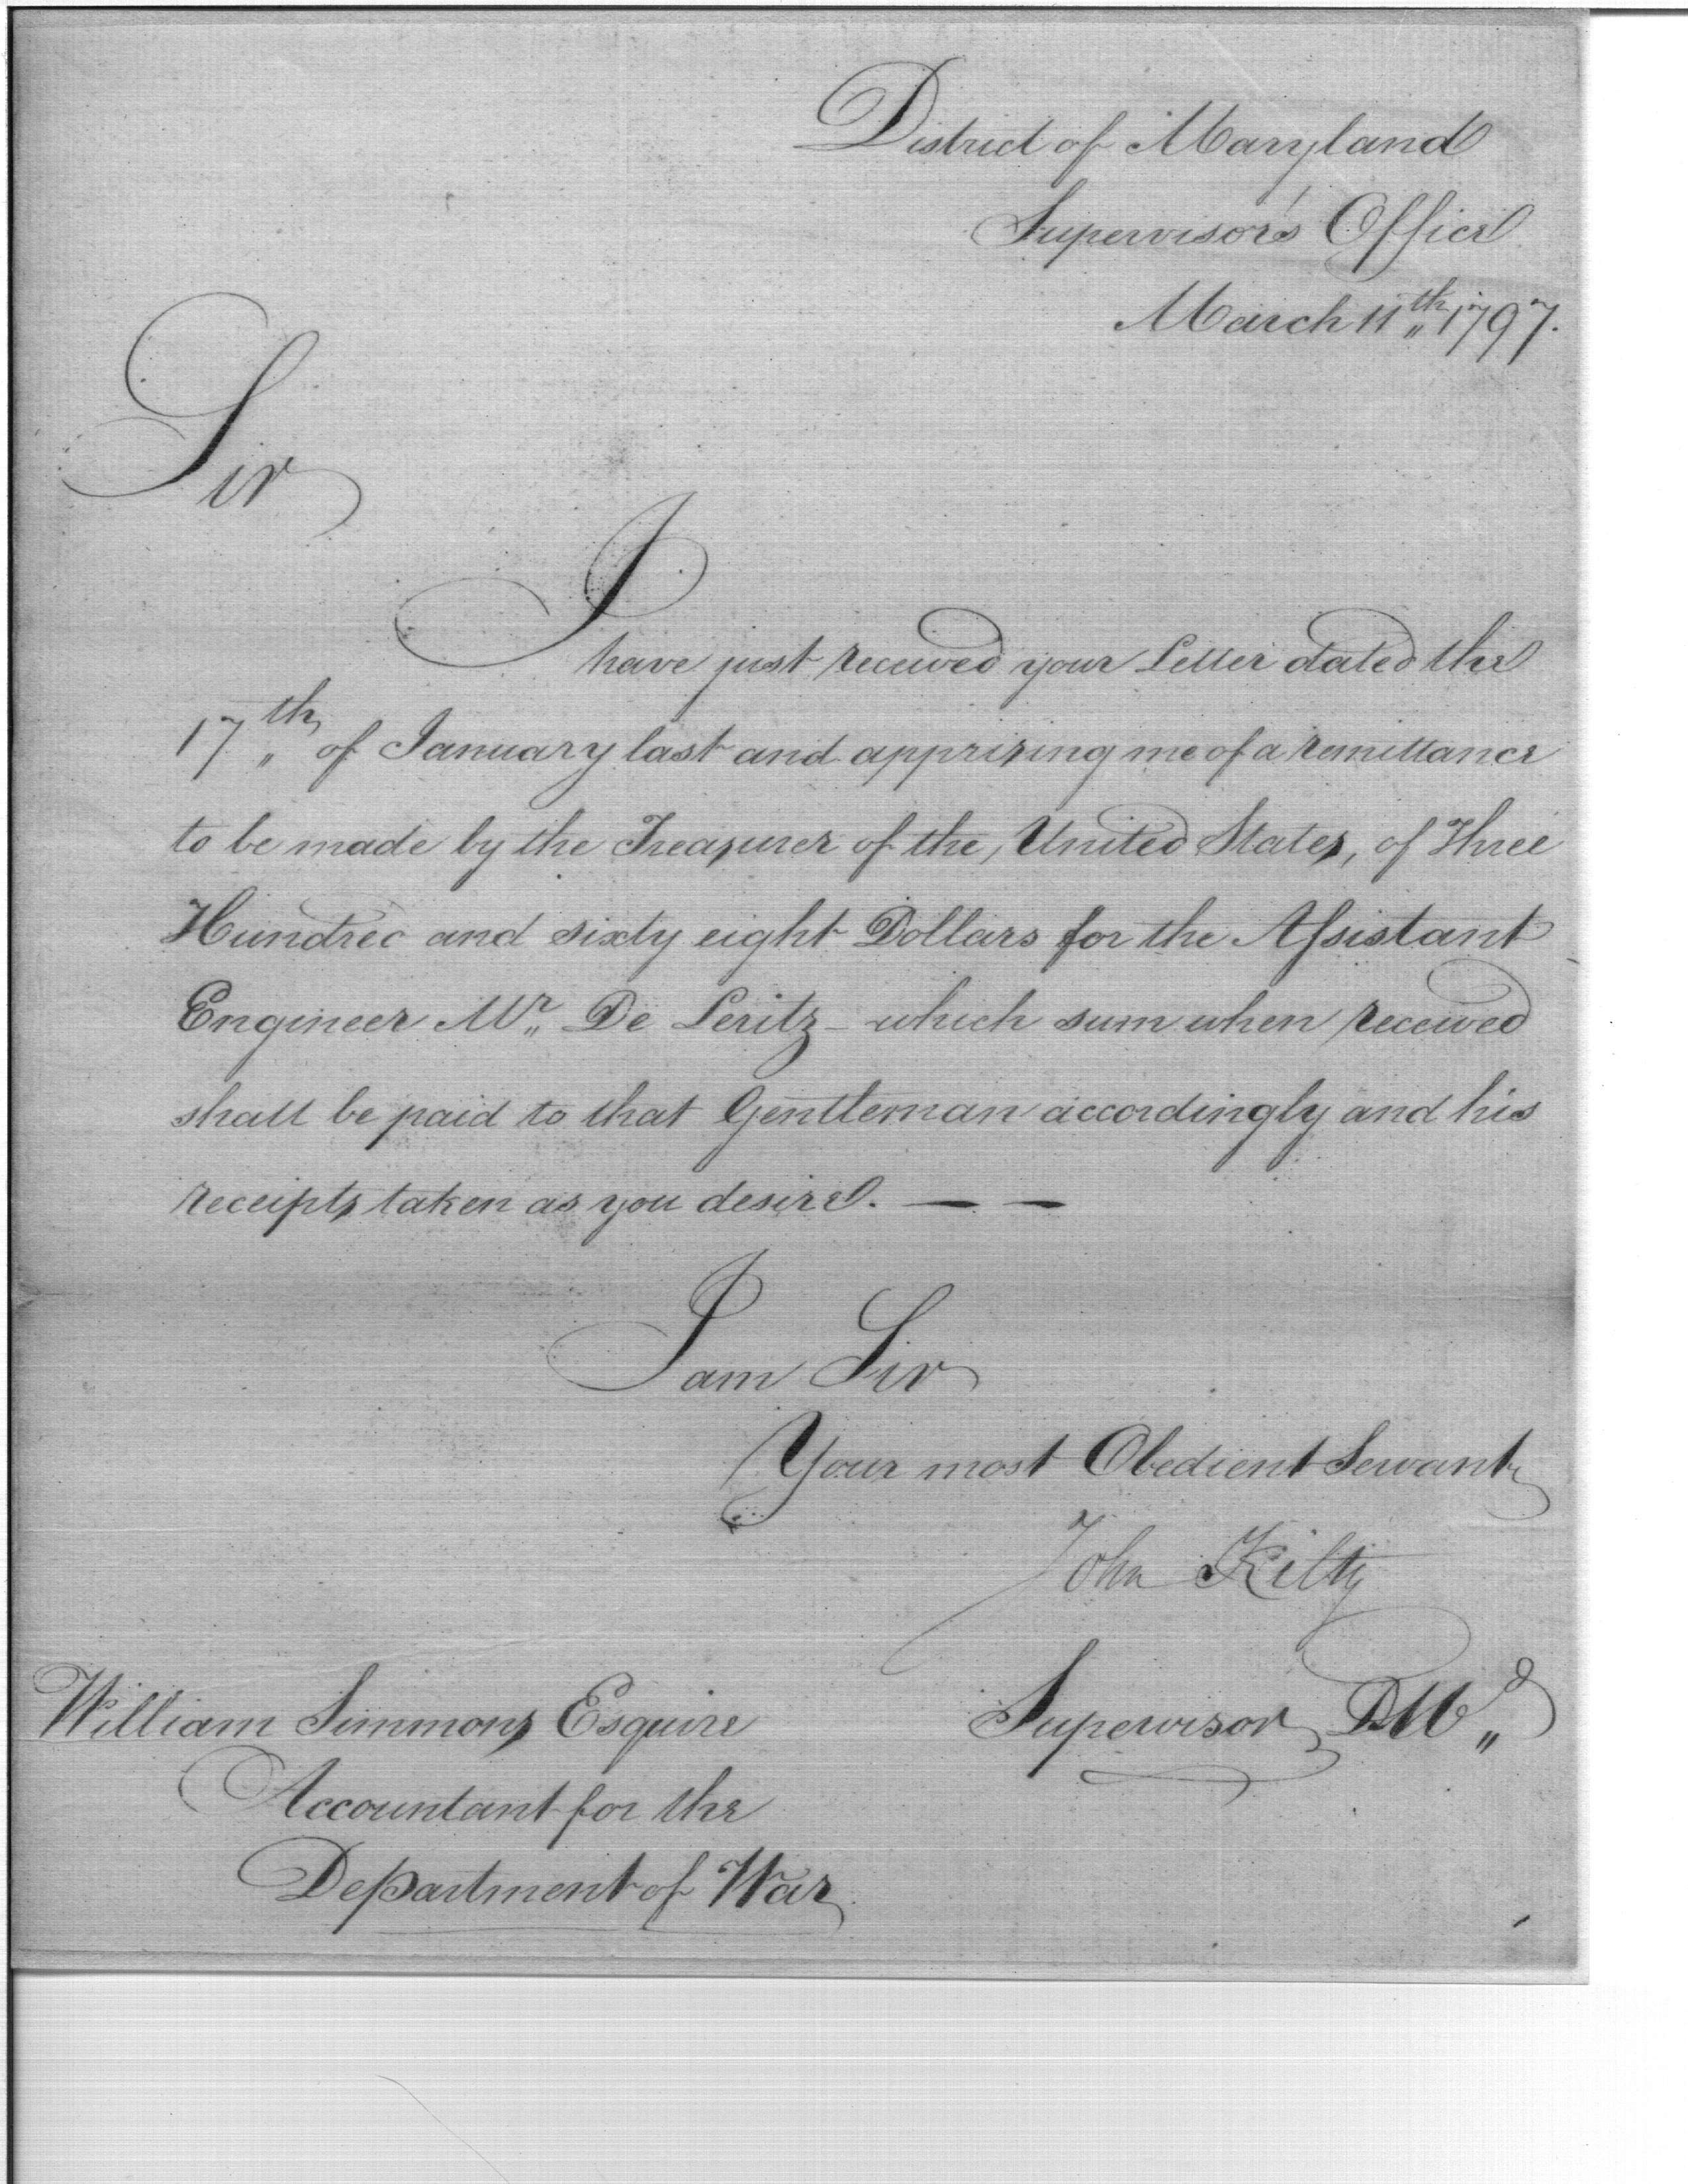 District of Maryland
Supervisor's Office
March 11th 1797.
Sir
I
have just received your Letter dated the
17th of January last and apprizing me of a remittance
to be made by the Treasurer of the United States, of Three
Hundred and sixty eight Dollars for the Assistant
Engineer Mr. De Leritz - which sum when received
shall be paid to that Gentleman accordingly and his
receipts taken as you desire. — —
I am Sir
Your most Obedient Servant
John Kilty
Supervisor DMd
William Simmons Esquire
Accountant for the
Department of War